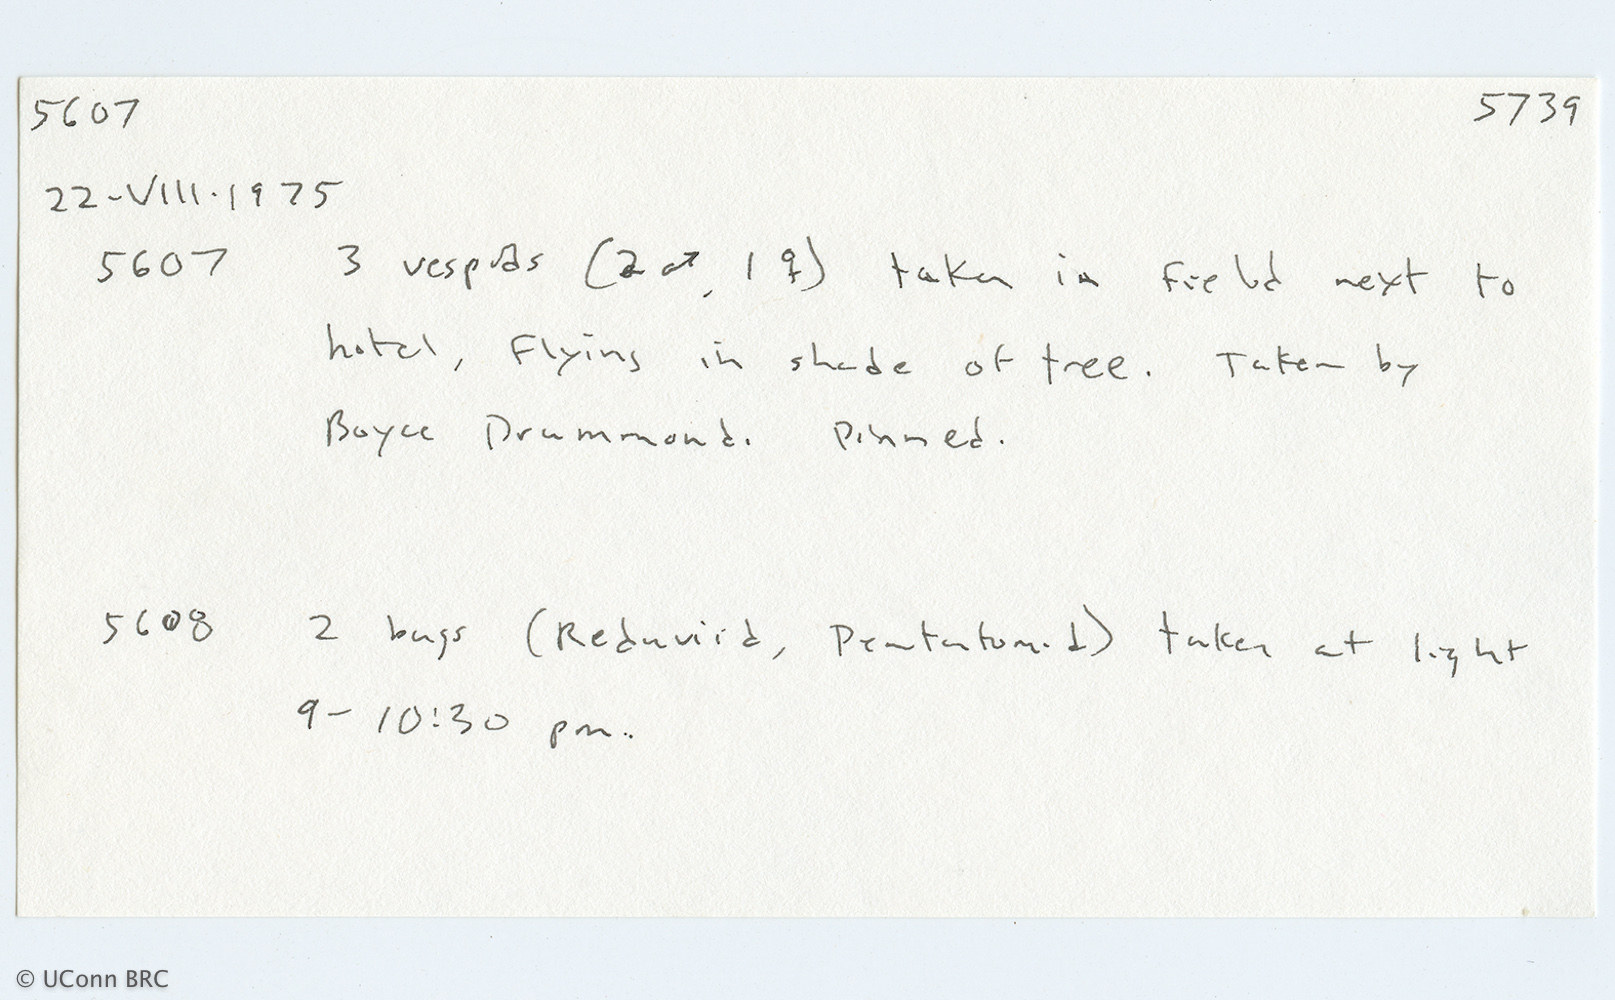 5607 5739
22-VIII-1975
5607 3 vespids (2 ♂, 1 ♀) taken in field next to
hotel, flying in shade of tree. Taken by
Boyce Drummond. Pinned.
5608 2 bugs (Reduviid, Pentatomid) taken at light
9-10:30 pm.
© UConn BRC